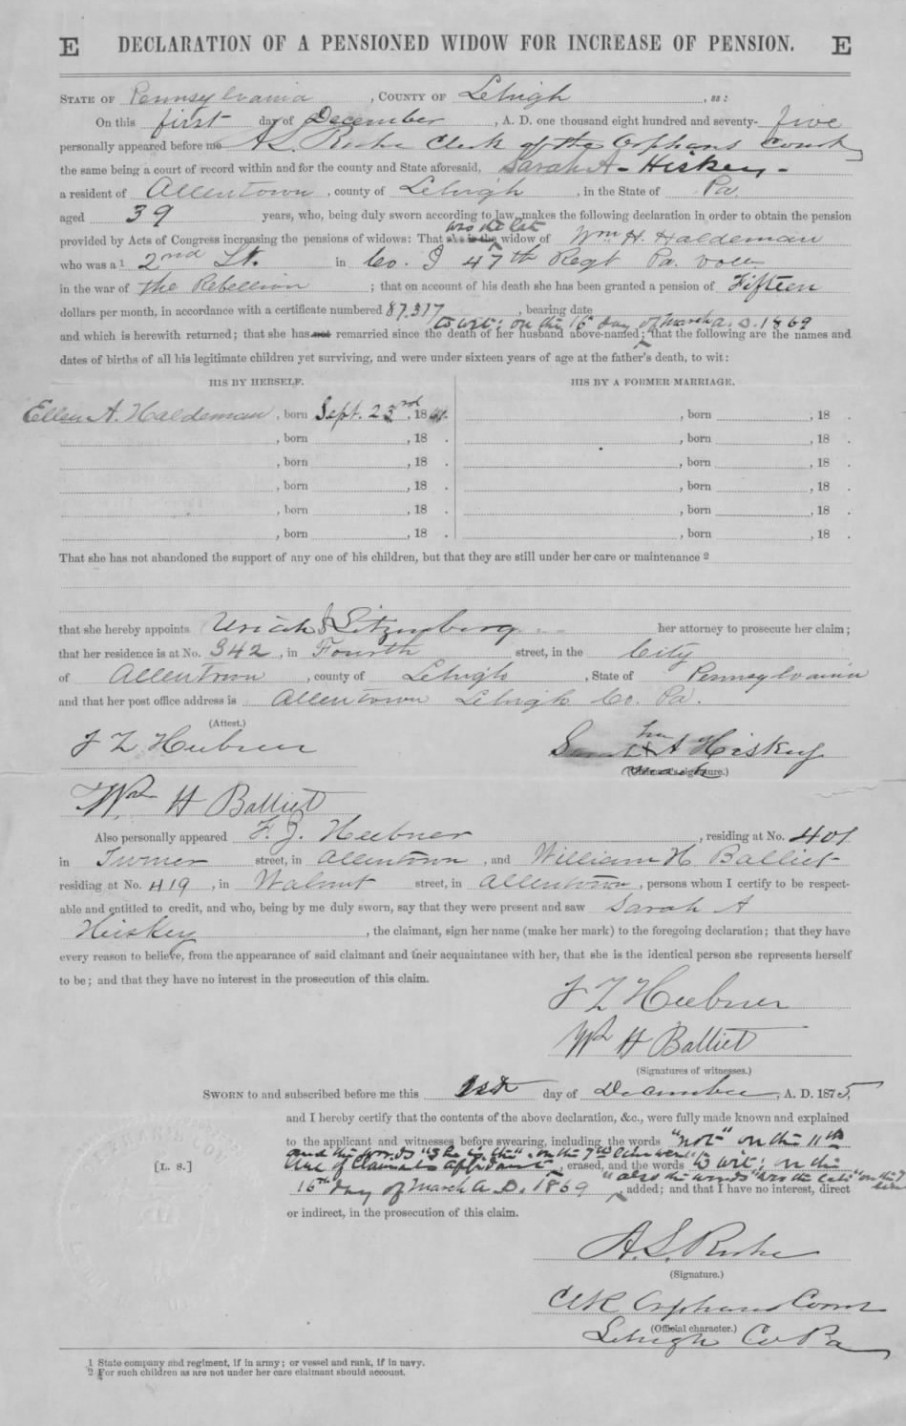 E DECLARATION OF A PENSIONED WIDOW FOR INCREASE OF PENSION. E
STATE OF Pennsylvania, COUNTY OF Lehigh, ss:
On this first day of December, A. D. one thousand eight hundred and seventy-five
personally appeared before me A S. Clerk of the Orphans Court
the same being a court of record within and for the county and State aforesaid, Sarah A - Hiskey -
a resident of Allentown, county of Lehigh, in the State of Pa.
aged 39 years, who, being duly sworn according to law, makes the following declaration in order to obtain the pension
was the late
provided by Acts of Congress increasing the pensions of widows: That she is the widow of Wm H. Haldeman
who was a 1 2nd Lt. in Co. I 47th Regt Pa. Vols
in the war of the Rebellion; that on account of his death she has been granted a pension of Fifteen
dollars per month, in accordance with a certificate numbered 87,317, bearing date
to wit: on the 16 day of March A. D. 1869
and which is herewith returned; that she has not remarried since the death of her husband above-named; that the following are the names and
dates of births of all his legitimate children yet surviving, and were under sixteen years of age at the father's death, to wit:
HIS BY HERSELF. HIS BY A FORMER MARRIAGE.
Ellen A. Haldeman, born Sept. 23rd, 18 . , born , 18 .
, born , 18 . , born , 18 .
, born , 18 . , born , 18 .
, born , 18 . , born , 18 .
, born , 18 . , born , 18 .
, born , 18 . , born , 18 .
That she has not abandoned the support of any one of his children, but that they are still under her care or maintenance 2
that she hereby appoints Uriah J Litzenberg her attorney to prosecute her claim;
that her residence is at No. 342, in Fourth street, in the City
of Allentown, county of Lehigh, State of Pennsylvania
and that her post office address is Allentown Lehigh Co. Pa.
(Attest.)
F Z Heebner
Sarah A Hiskey
(Claimant's signature.)
Wm H Balliet
Also personally appeared F. Z. Heebner, residing at No. 401
in Turner street, in Allentown, and William H Balliet
residing at No. 419, in Walnut street, in Allentown, persons whom I certify to be respect-
able and entitled to credit, and who, being by me duly sworn, say that they were present and saw Sarah A
Hiskey, the claimant, sign her name (make her mark) to the foregoing declaration; that they have
every reason to believe, from the appearance of said claimant and their acquaintance with her, that she is the identical person she represents herself
to be; and that they have no interest in the prosecution of this claim.
F Z Heebner
Wm H Balliet
(Signatures of witnesses.)
SWORN to and subscribed before me this 1st day of December, A. D. 1875,
and I hereby certify that the contents of the above declaration, &c., were fully made known and explained
to the applicant and witnesses before swearing, including the words "not" on the 11th
and the words "she is the" on the 7th
line of Claimants affidavit, erased, and the words "to wit; on the
[L. S.]
16th day of March A. D. 1869 "also the words "was the late" on the 7 line, added; and that I have no interest, direct
or indirect, in the prosecution of this claim.
A. S.
(Signature.)
Clk Orphans Court
(Official character.)
Lehigh Co Pa
1 State company and regiment, if in army; or vessel and rank, if in navy.
2 For such children as are not under her care claimant should account.